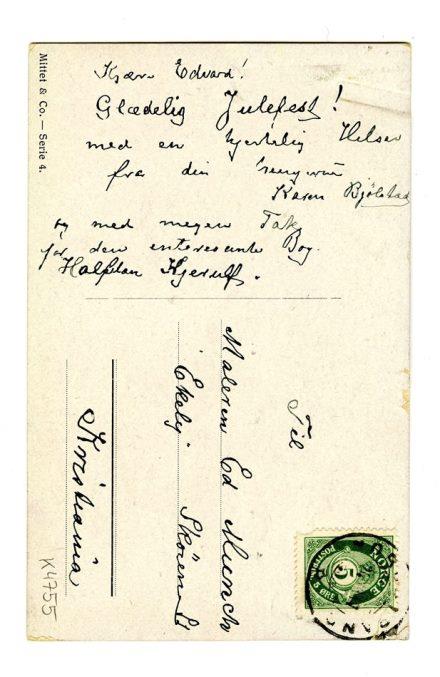 Kjære Edvard!
Glædelig Julefest!
med en hjertelig Hilsen
fra din hengivne
Karen Bjølstad
og med megen Tak
for den interesante Bog.
Halfdan Kjerulf.
Mittet & Co. — Serie 4.
Til
Maleren Ed Munch
Ekely Skøien St
Kristiania
NORGE
5
POSTFRIM. 5 ØRE
K4755